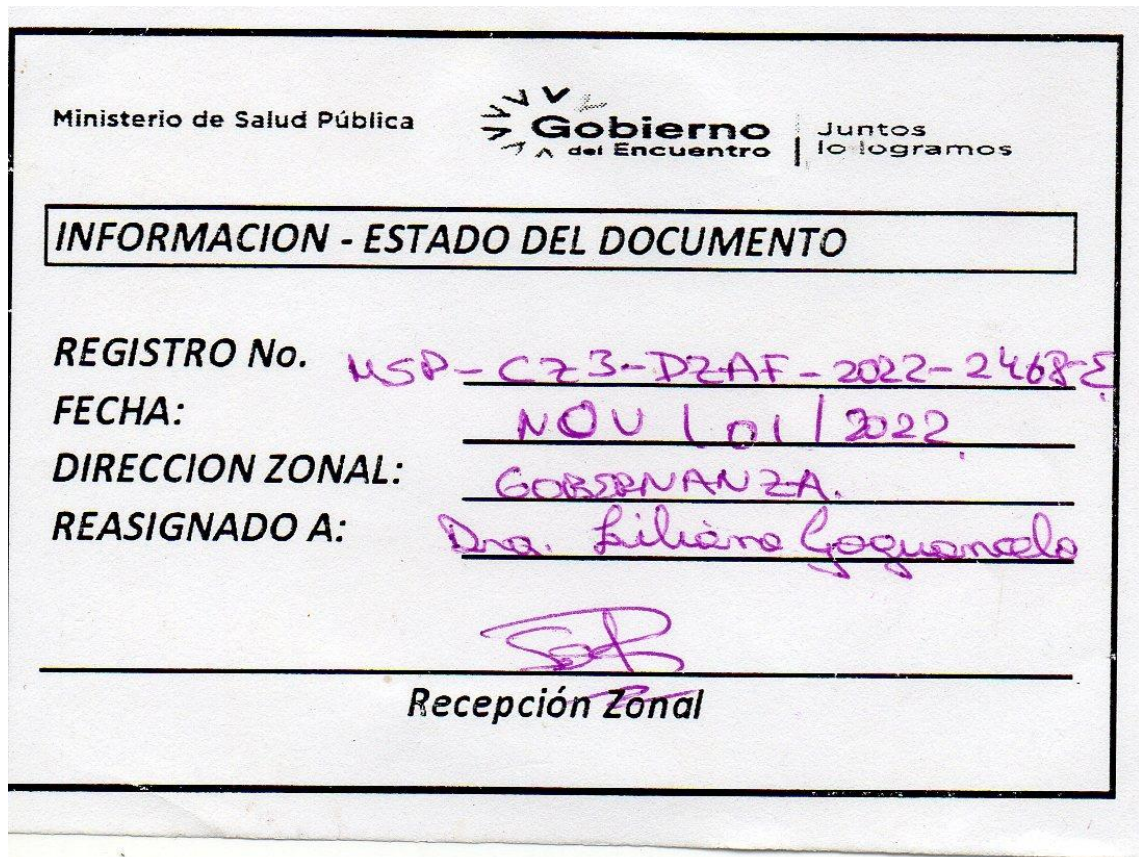 Ministerio de Salud Pública
Gobierno
del Encuentro
Juntos
lo logramos
INFORMACION - ESTADO DEL DOCUMENTO
REGISTRO No. MSP-CZ3-DZAF-2022-2468-E
FECHA: NOV / 01 / 2022
DIRECCION ZONAL: GOBERNANZA.
REASIGNADO A: Dra. Liliana
Recepción Zonal